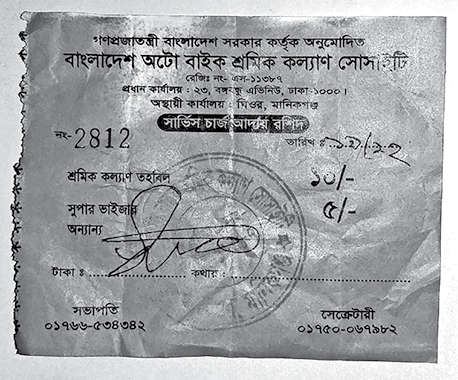 গণপ্রজাতন্ত্রী বাংলাদেশ সরকার কর্তৃক অনুমোদিত
বাংলাদেশ অটো বাইক শ্রমিক কল্যাণ সোসাইটি
রেজিঃ নং- এস-১১৩৮৭
প্রধান কার্যালয় : ২৩, বঙ্গবন্ধু এভিনিউ, ঢাকা-১০০০।
অস্থায়ী কার্যালয় : ঘিওর, মানিকগঞ্জ
সার্ভিস চার্জ আদায় রশিদ
নং- 2812 তারিখ :
শ্রমিক কল্যাণ তহবিল ১০/-
সুপার ভাইজার ৫/-
অন্যান্য
টাকা : কথায় :
সভাপতি সেক্রেটারী
০১৭৬৬-৫৩৪৩৪২ ০১৭৫০-০৬৭৯৮২